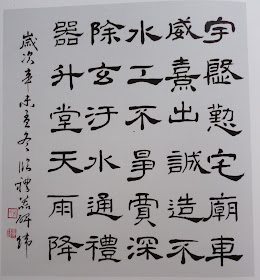 宇慇懃宅廟車
威熹出誠造不
水工不爭賈深
除玄汙水通禮
器升堂天雨降
歲次辛未孟冬臨禮器碑